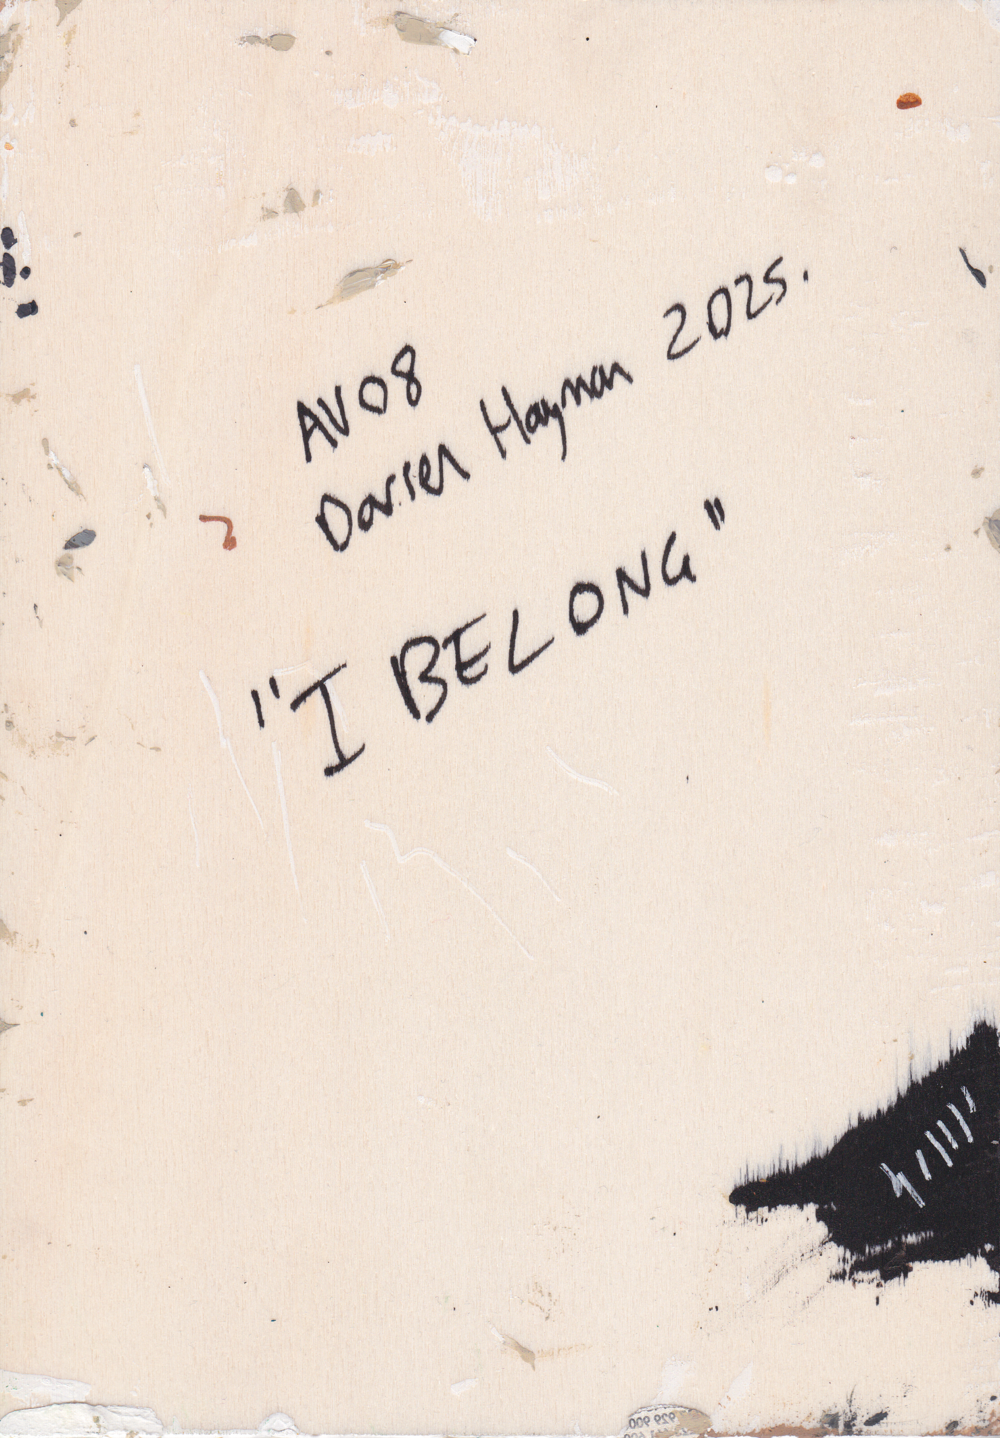 AV08
Darren Hayman 2025.
"I BELONG"